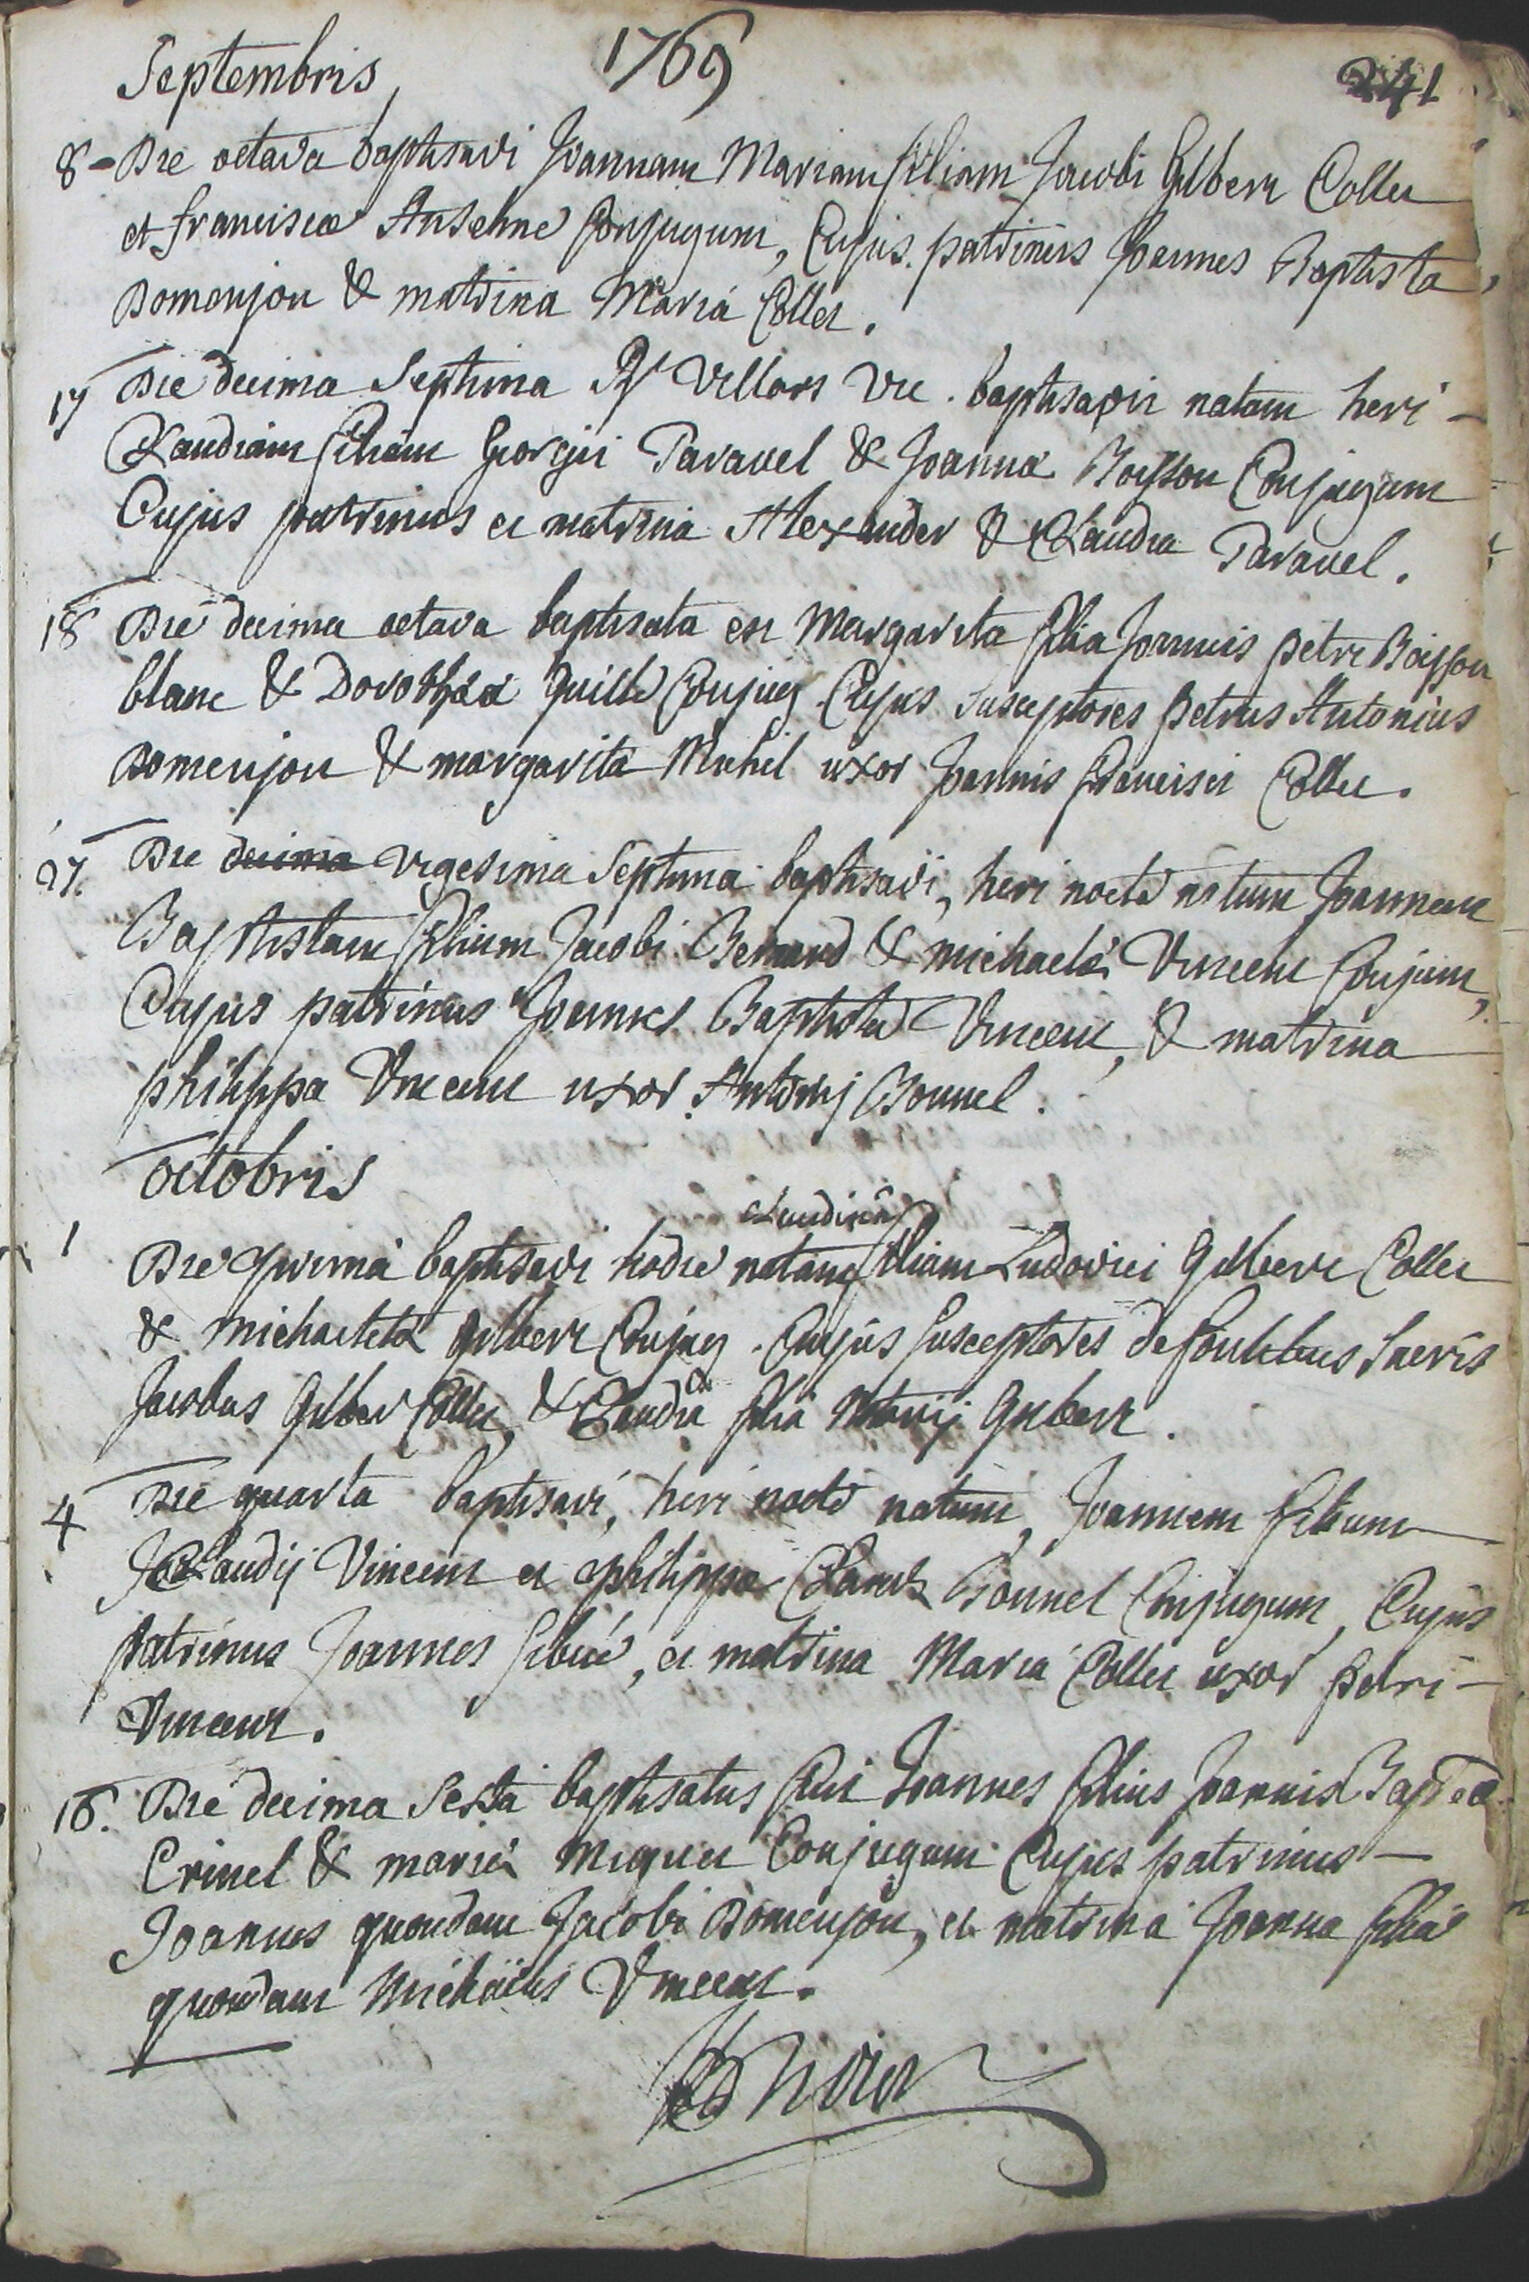 Septembris 1769 241
8 - Die octava baptisavi Joannam Mariam filiam Jacobi Gilbert Collet
et franciscæ Anselme Conjugum, Cujus patrinus Joannes Baptista,
Domenjon & matrina Maria Collet.
17 Die decima Septima Rd Villars Vic. baptisavit natam heri -
Claudiam filiam Georgii Paravel & Joannæ Boisson Conjugum
Cujus patrinus et matrina Alexander & Claudia Paravel.
18 Die decima octava baptisata est Margarita filia Joannis petri Boisson
blanc & Dorotheæ Conjug. Cujus Susceptores petrus Antonius
Domenjon & margarita Michel uxor Joannis francisci Collet.
27. Die decima vigesima Septima baptisavi, heri nocte natum Joannem
Baptistam filium Jacobi Bernard & michaelæ Vincent Conjum,
Cujus patrinus Joannes Baptista Vincent, & matrina
philippa Vincent uxor Antonij Bonnel.
octobris
claudiam
1 Die prima baptisavi hodie natam filiam Ludovici Gilbert Collet
& michaeletæ gilbert Conjug. Cujus Susceptores de fontibus Sacris
Jacobus Gilbert Collet, & Claudia filia Notarij Gilbert.
4 Die quarta baptisavi, heri nocte natum, Joannem filium
Claudij Vincent et philippæ Bonnel Conjugum, Cujus
patrinus Joannes, et matrina Maria Collet uxor petri -
Vincent.
16. Die decima Sexta baptisatus fuit Joannes filius Joannis Baptæ
Crinel & mariæ Conjugum Cujus patrinus -
Joannes quondam Jacobi Domenjon, et matrina Joanna filia
quondam Michaelis Vincent.